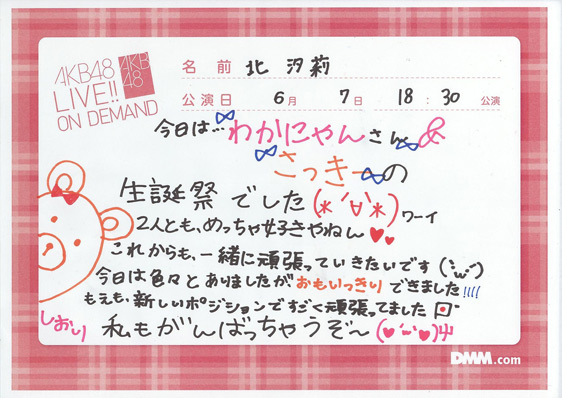 AKB48
LIVE!!
ON DEMAND
AKB
48
名前 北 汐莉
公演日 6月 7日 18:30 公演
今日は…わかにゃんさん&
さっきーの
生誕祭でした(*´∀`*)ワーイ
2人とも、めっちゃ好きやねん♥♥
これからも、一緒に頑張っていきたいです(˙ω˙)
今日は色々とありましたがおもいっきりできました!!!!
もえも、新しいポジションですごく頑張ってました
しおり 私もがんばっちゃうぞ〜(♥´ー`♥)
DMM.com